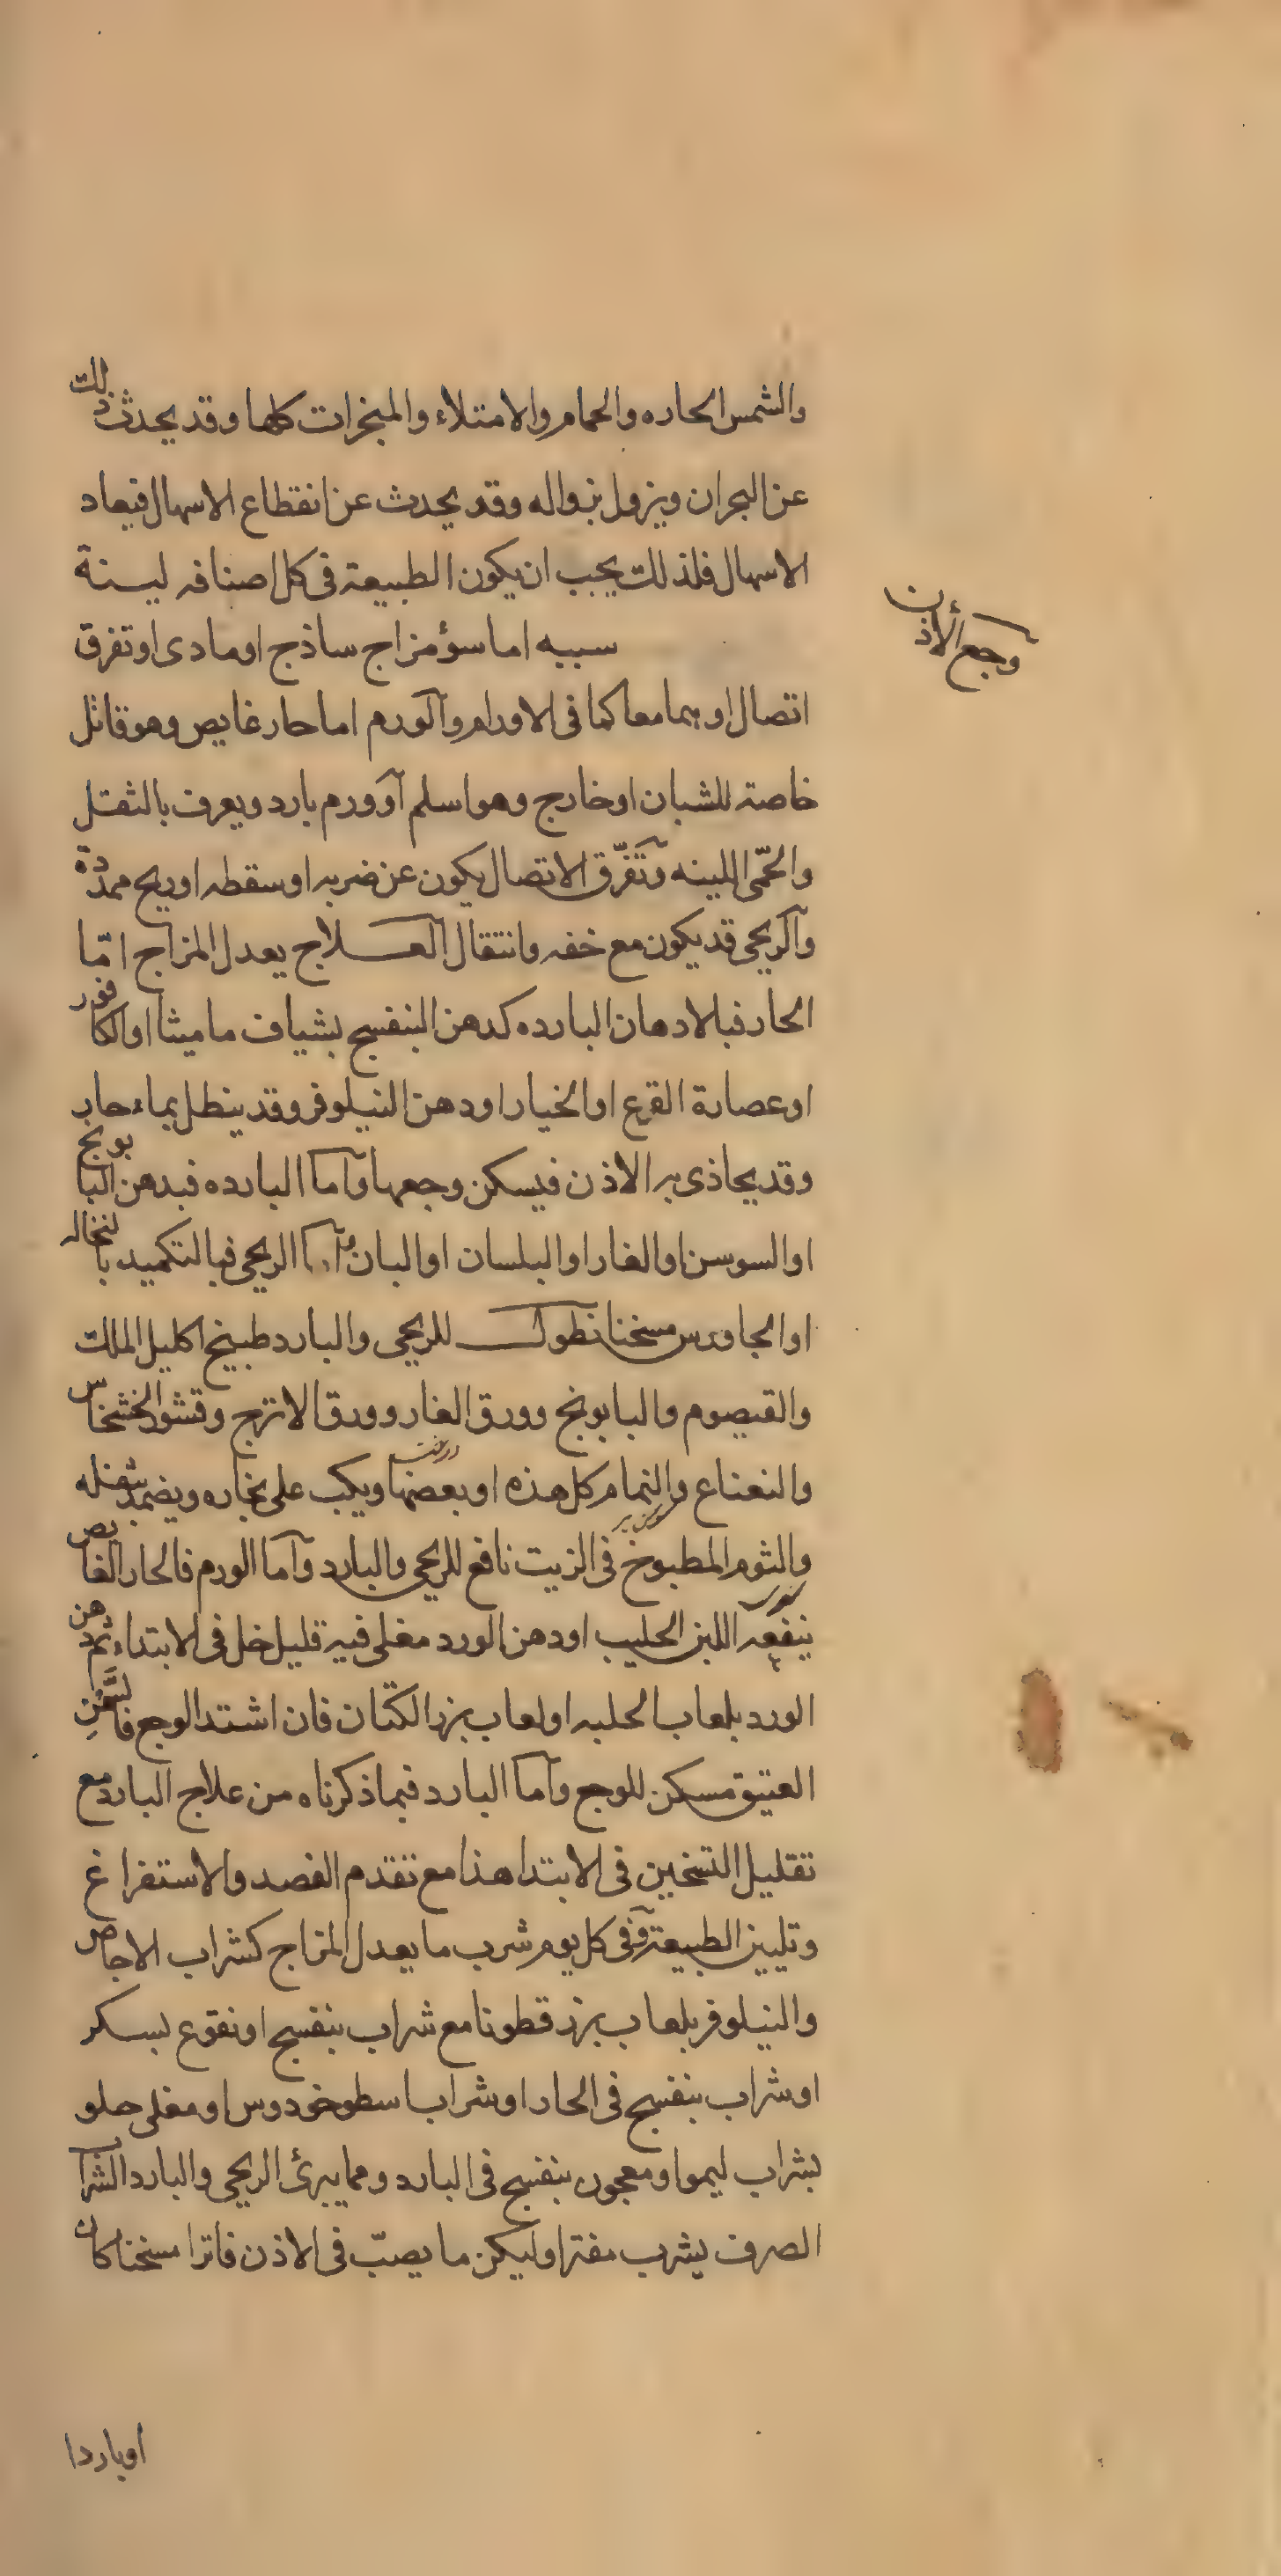 والشمس الحاره والحمام والامتلاء والمبخرات كلها وقد يحدث ذلك
عن البحران ويزول بزواله وقد يحدث عن انقطاع الاسهال فيعاد
الاسهال فلذلك يجب ان يكون الطبيعة فى كل اصنافه لينة
وجع الأذن
سببه اما سؤ مزاج ساذج او مادى او تفرق
اتصال او هما معا كما فى الاورام والورم اما حار غايص وهو قاتل
خاصة للشبان او خارج وهو اسلم او ورم بارد ويعرف بالثقل
والحمّى اللينه وتفرّق الاتصال يكون عن ضربه او سقطه او ريح ممدّدة
والريحى قد يكون مع خفه وانتقال العلاج يعدل المزاج امّا
الحار فبالادهان البارده كدهن البنفسج بشياف ماميثا او الكافور
او عصارة القرع او الخيار او دهن النيلوفر وقد ينطل بماء حار
وقد يحاذى به الاذن فيسكن وجعها واما البارده فبدهن البابونج
او السوسن او الغار او البلسان او البان واما الريحى فبالتكميد بالنخاله
او الجاورس مسخنا نطول للريحى والبارد طبيخ اكليل الملك
والقيصوم والبابونج وورق الغار وورق الاترج وقشور الخشخاش
والنعناع والنمام كل هذه او بعضها ويكب على بخاره ويضمد بثفله
والثوم المطبوخ فى الزيت نافع للريحى والبارد واما الورم فالحار الغايص
ينفعه اللبن الحليب او دهن الورد مغلى فيه قليل خل فى الابتداء ثم دهن
الورد بلعاب الحلبه او لعاب بزر الكتان فان اشتد الوجع فالسّمن
العتيق مسكن للوجع واما البارد فبما ذكرناه من علاج البارد مع
تقليل التسخين فى الابتدا هذا مع تقدم الفصد والاستفراغ
وتليين الطبيعة وفى كل يوم شرب ما يعدل المزاج كشراب الاجاص
والنيلوفر بلعاب بزر قطونا مع شراب بنفسج او نقوع بسكر
او شراب بنفسج فى الحار او شراب اسطوخودوس او مغلى حلو
بشراب ليمو او معجون بنفسج فى البارد ومما يبرئ الريحى والبارد الشراب
الصرف يشرب مفترا وليكن ما يصبّ فى الاذن فاترا مسخنا كان
او باردا